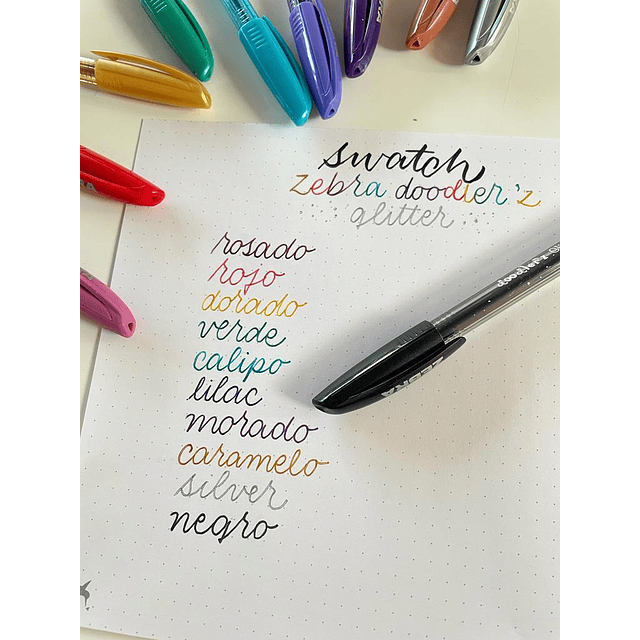 swatch
zebra doodler'z
glitter
rosado
rojo
dorado
verde
calipo
lilac
morado
caramelo
silver
negro
doodler'z
ZEBRA